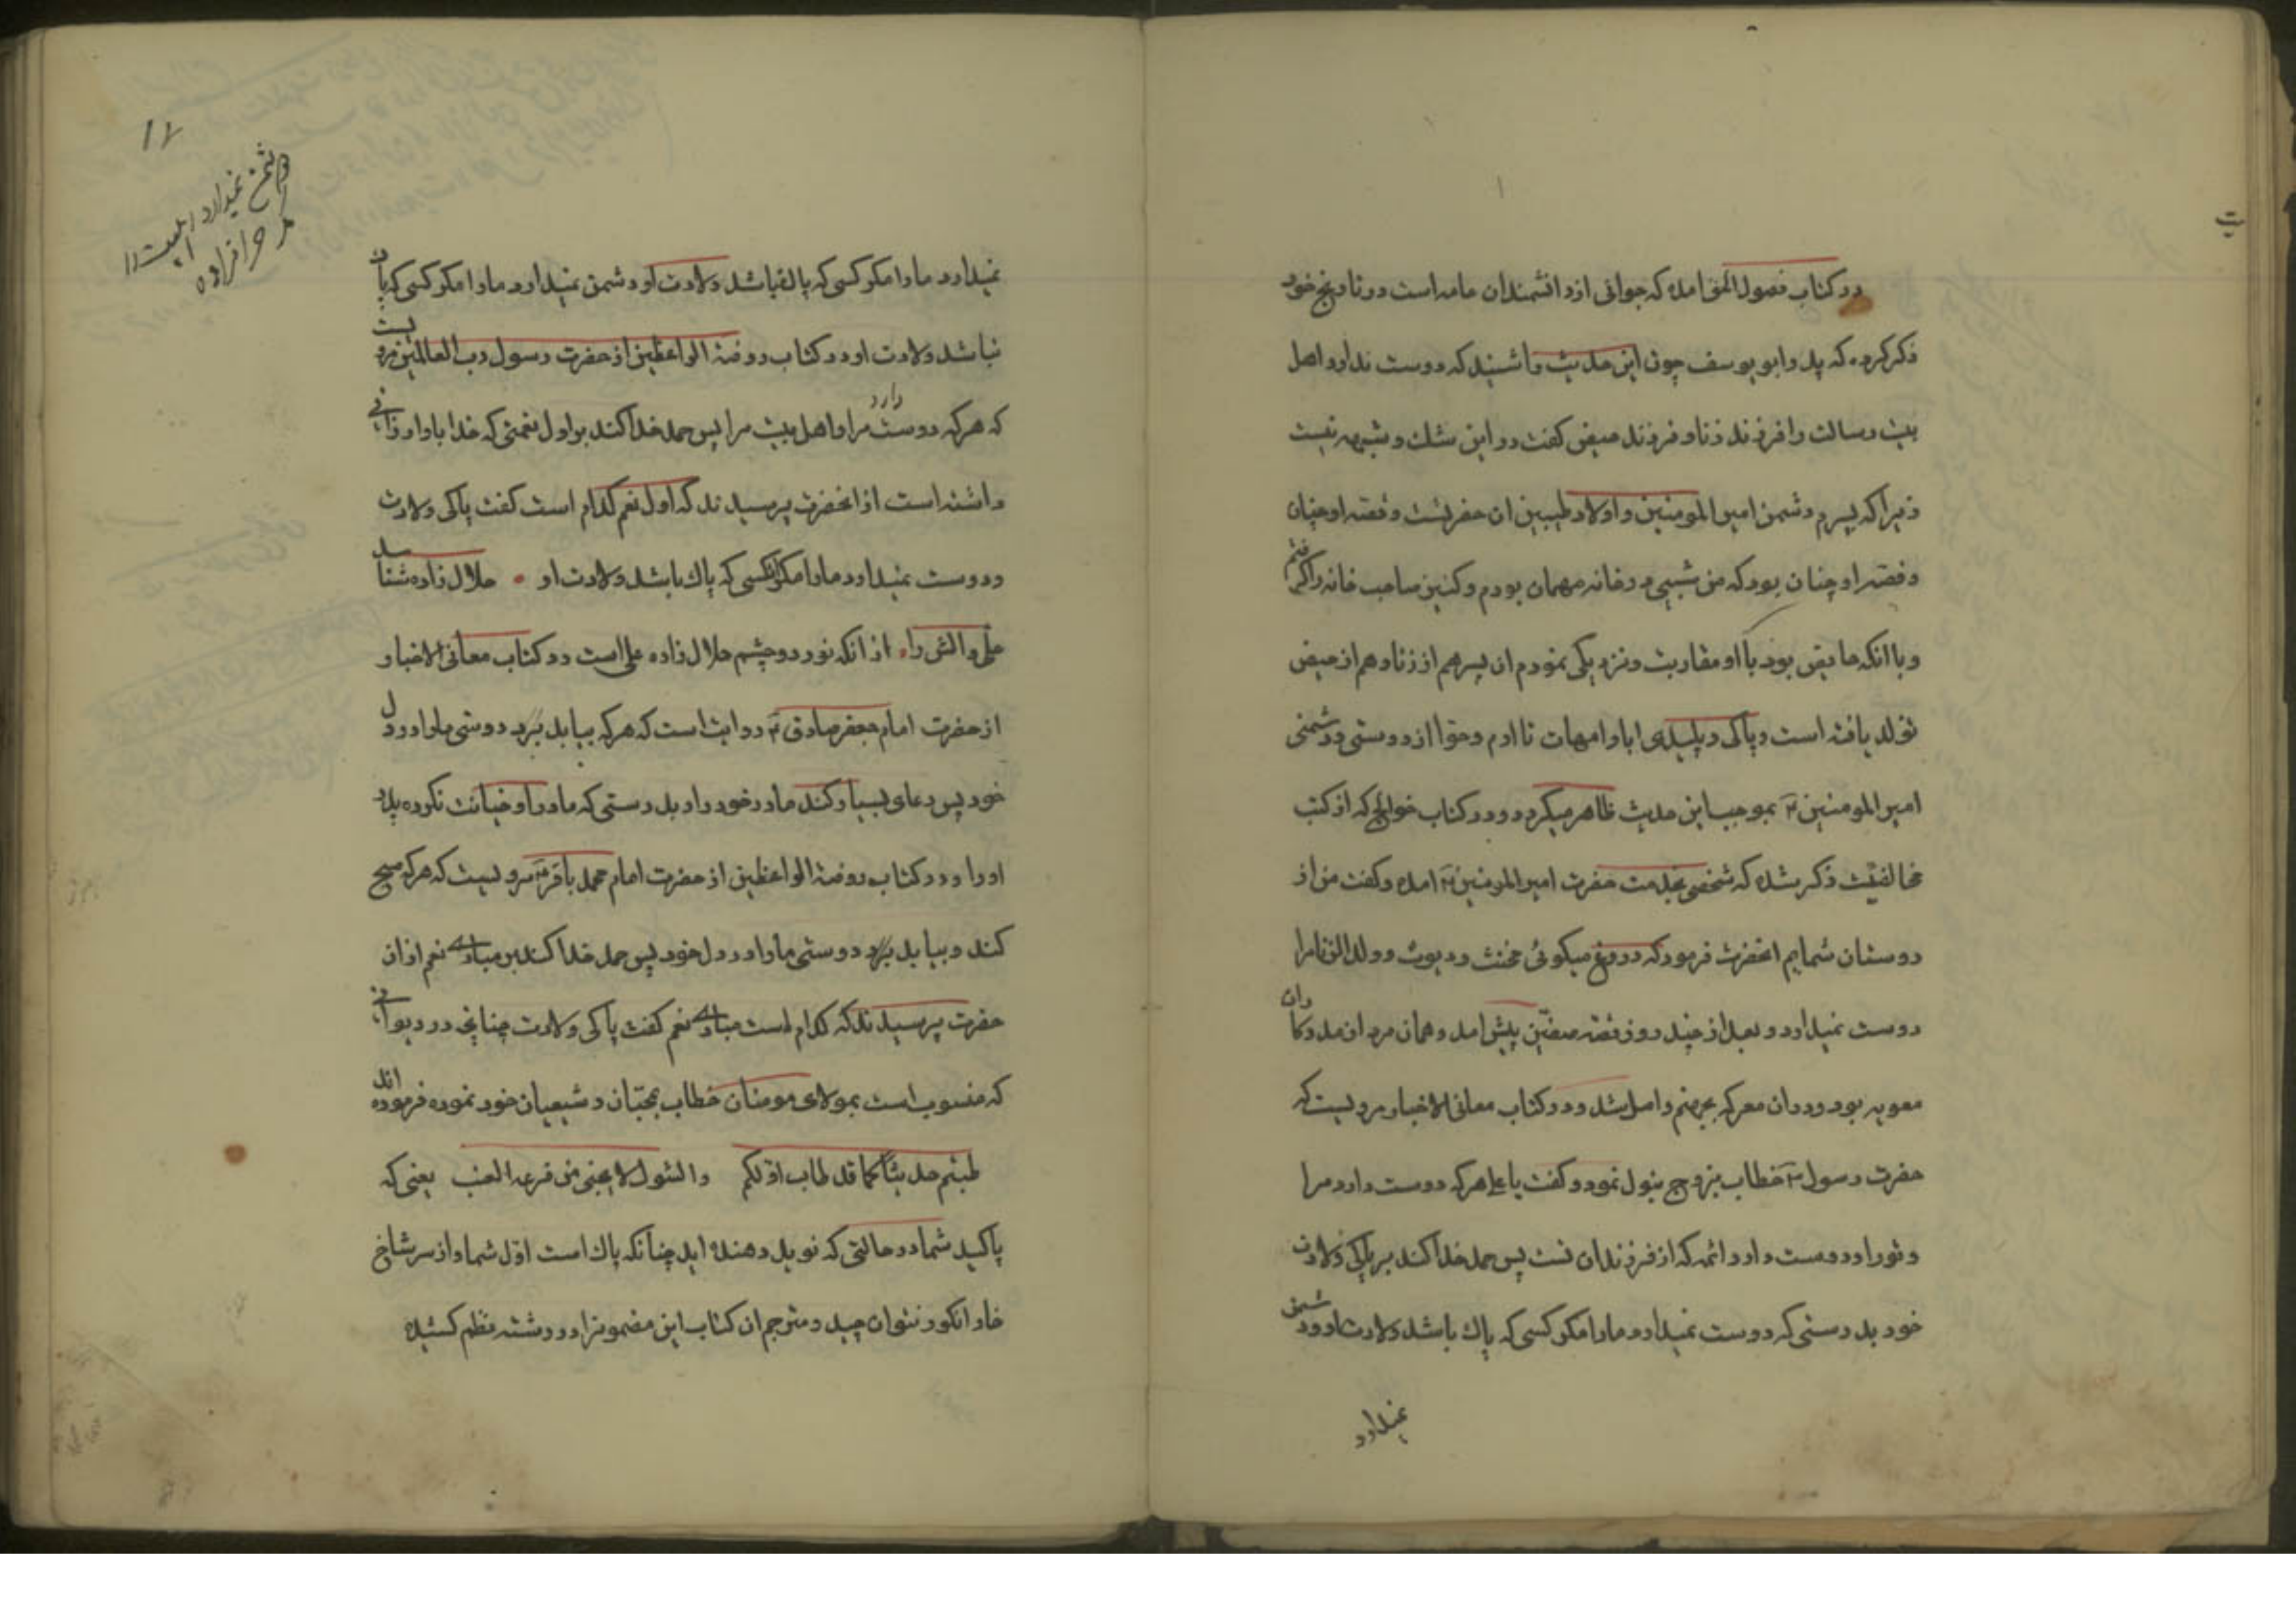 در کتاب فصول المهمه امده که جوانی از دانشمندان عامه است در تاریخ خود
ذکر کرده که پدر ابو یوسف چون این حدیث را شنید که دوست ندارد اهل
بیت رسالت را فرزند زنا و فرزند حیض گفت در این شک و شبهه نیست
زیرا که پسرم دشمن امیر المومنین و اولاد طیبین ان حضرتست و قصه او چنان
و قصه او چنان بود که من شبی در خانه مهمان بودم و کنیز صاحب خانه را گرفتم
و با انکه حایض بود با او مقاربت و نزدیکی نمودم ان پسر هم از زنا و هم از حیض
تولد یافته است و پاکی و پلیدی ابا و امهات تا ادم و حوا از دوستی و دشمنی
امیر المومنین ع بموجب این حدیث ظاهر میگردد و در کتاب خوالج که از کتب
مخالفینست ذکر شده که شخصی بخدمت حضرت امیر المومنین ع امده و گفت من از
دوستان شمایم انحضرت فرمود که دروغ میگوئی مخنث و دیوث و ولد الزنا مرا
دوست نمیدارد و بعد از چند روز قصه صفین پیش امد و همان مرد از مددکاران
معویه بود و در ان معرکه بجهنم واصل شد و در کتاب معانی الاخبار مرویست که
حضرت رسول ص خطاب بزوج بتول نمود و گفت یا علی هر که دوست دارد مرا
و تو را و دوست دارد ائمه که از فرزندان تست پس حمد خدا کند بر پاکی ولادت
خود بدرستی که دوست نمیدارد ما را مگر کسی که پاک باشد ولادت او و دشمن
نمیدارد
ت
۱۷
دشمن نمیدارد اهلبیت را
مگر حرامزاده
نمیدارد ما را مگر کسی که پاک باشد ولادت او دشمن نمیدارد ما را مگر کسی که پاک
نباشد ولادت او در کتاب روضة الواعظین از حضرت رسول رب العالمین مرویست
که هر که دوست دارد مرا و اهل بیت مرا پس حمد خدا کند بر اول نعمتی که خدا باو ارزانی
داشته است از انحضرت پرسیدند که اول نعم کدام است گفت پاکی ولادت
و دوست نمیدارد ما را مگر انکسی که پاک باشد ولادت او • حلال زاده شناسد
علی و الش را • از انکه نور دو چشم حلال زاده علی است در کتاب معانی الاخبار
از حضرت امام جعفر صادق ع روایت است که هر که بیابد برد دوستی ما را در دل
خود پس دعای بسیار کند مادر خود را و بدرستی که مادر او خیانت نکرده پدر
او را و در کتاب روضة الواعظین از حضرت امام محمد باقر ع مرویست که هر که صبح
کند و بیابد برد دوستی ما را در دل خود پس حمد خدا کند بر مبادی نعم از ان
حضرت پرسیدند که کدام است مبادی نعم گفت پاکی ولادت چنانچه در دیوانی
که منسوب است بمولای مومنان خطاب بمحبان و شیعیان خود نموده فرموده اند
طبتم حدیثا کما قد طاب اولکم والشوک لا یجنی من فرعه العنب یعنی که
پاکید شما در حالتی که نوید دهنده اید چنانکه پاک است اول شما و از سر شاخ
خار انگور نتوان چید و مترجم ان کتاب این مضمونرا در رشته نظم کشیده